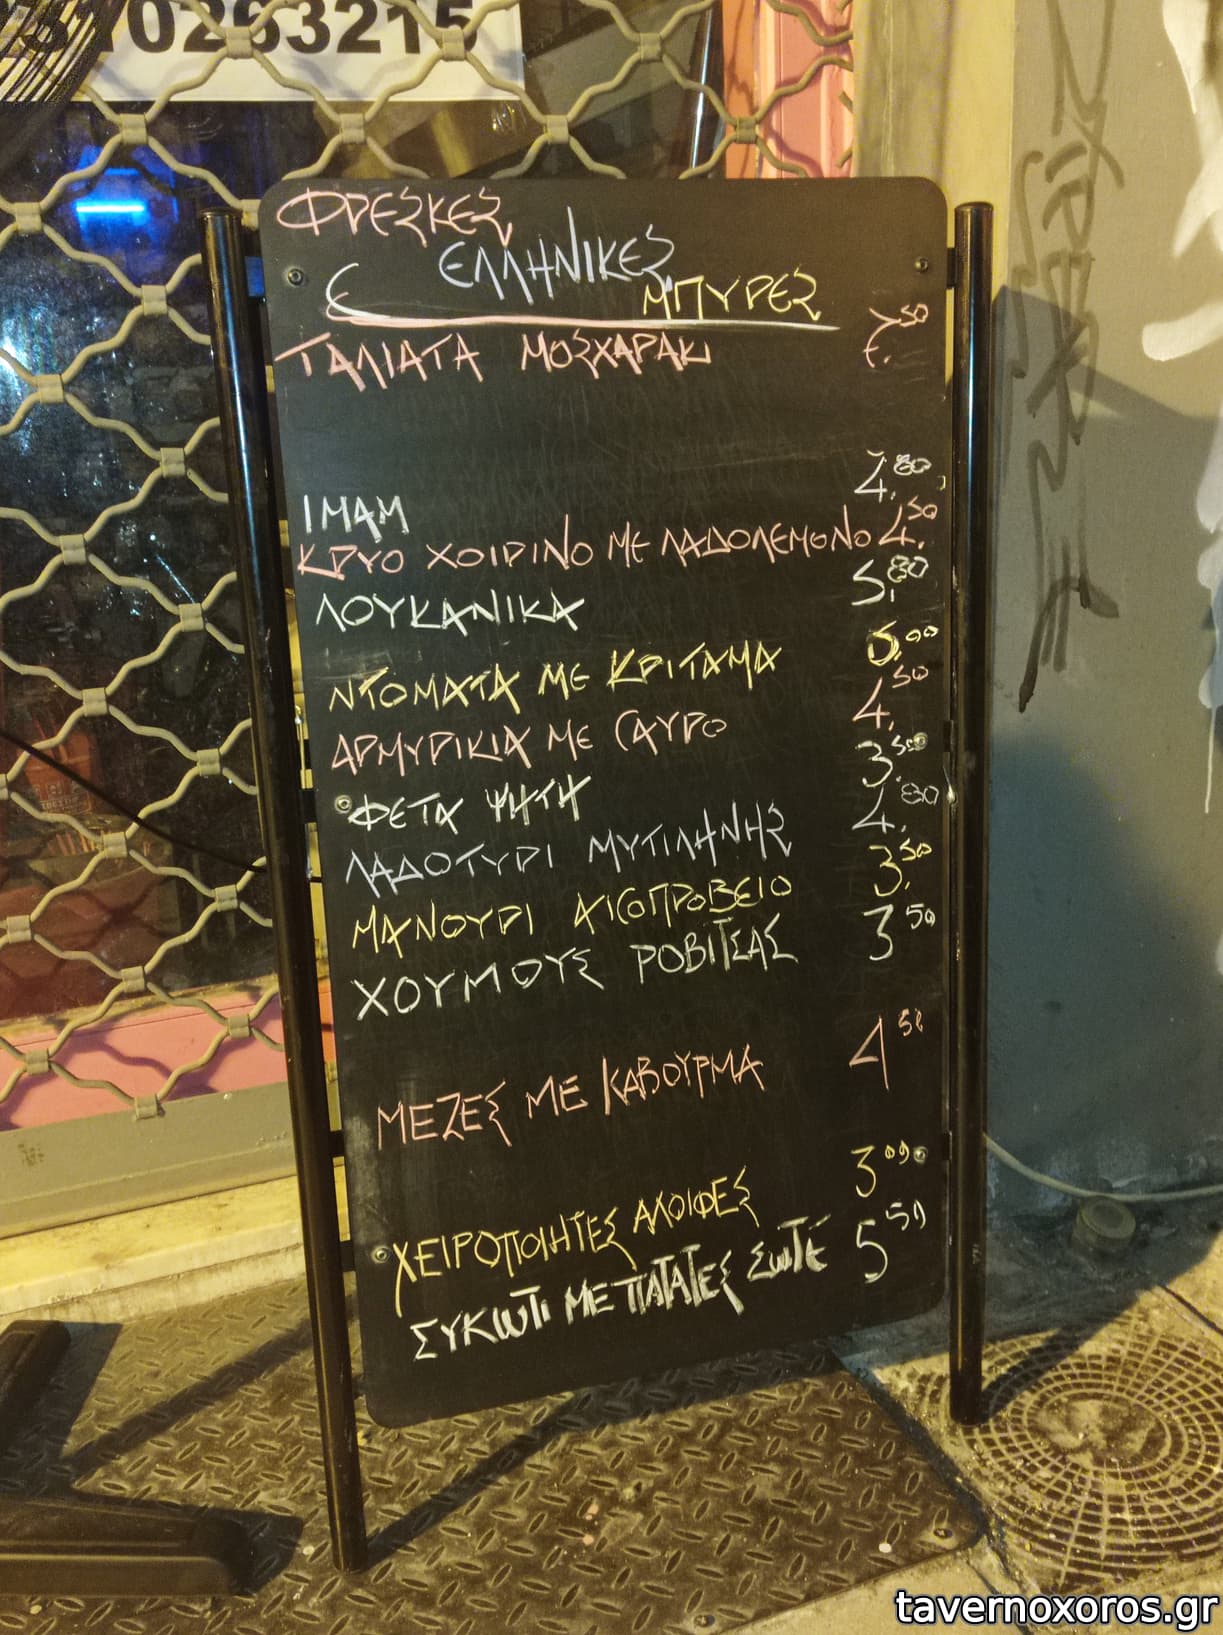 310263215
ΦΡΕΣΚΕΣ
ΕΛΛΗΝΙΚΕΣ
€ ΜΠΥΡΕΣ
ΤΑΛΙΑΤΑ ΜΟΣΧΑΡΑΚΙ 7.50
ΙΜΑΜ 4.80
ΚΡΥΟ ΧΟΙΡΙΝΟ ΜΕ ΛΑΔΟΛΕΜΟΝΟ 4.50
ΛΟΥΚΑΝΙΚΑ 5.80
ΝΤΟΜΑΤΑ ΜΕ ΚΡΙΤΑΜΑ 5.00
ΑΡΜΥΡΙΚΙΑ ΜΕ ΓΑΥΡΟ 4.50
ΦΕΤΑ ΨΗΤΗ 3.50
ΛΑΔΟΤΥΡΙ ΜΥΤΙΛΗΝΗΣ 4.80
ΜΑΝΟΥΡΙ ΑΙΓΟΠΡΟΒΕΙΟ 3.50
ΧΟΥΜΟΥΣ ΡΟΒΙΤΣΑΣ 3 50
ΜΕΖΕΣ ΜΕ ΚΑΒΟΥΡΜΑ 4 50
ΧΕΙΡΟΠΟΙΗΤΕΣ ΑΛΟΙΦΕΣ 3 00
ΣΥΚΩΤΙ ΜΕ ΠΑΤΑΤΕΣ ΣΩΤΕ 5 50
tavernoxoros.gr